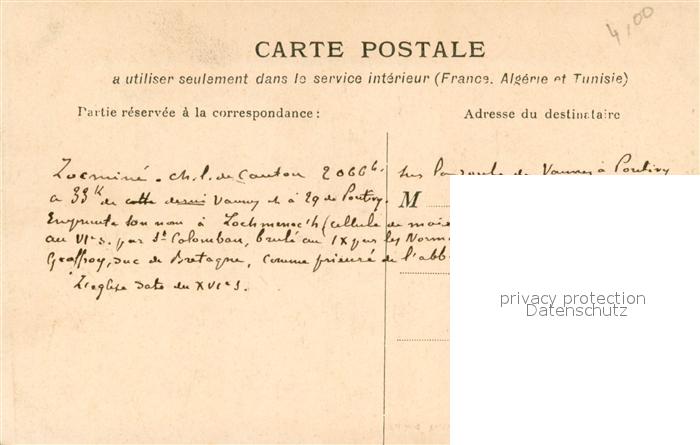 4,00
CARTE POSTALE
a utiliser seulement dans le service intérieur (France, Algérie et Tunisie)
Partie réservée à la correspondance :
Adresse du destinataire
Locminé. ch. l. de Canton 2066 h. sur la route de Vannes à Pontivy
a 33k de cette dernière Vannes et à 29 de Pontivy.
M
Emprunte son nom à Lochmenec'h (cellule de moi
au VIe s. par St Colomban, brulé au IX par les Norm
Geoffroy, duc de Bretagne, comme prieuré de l'abb
L'eglise date du XVIe s.
privacy protection
Datenschutz